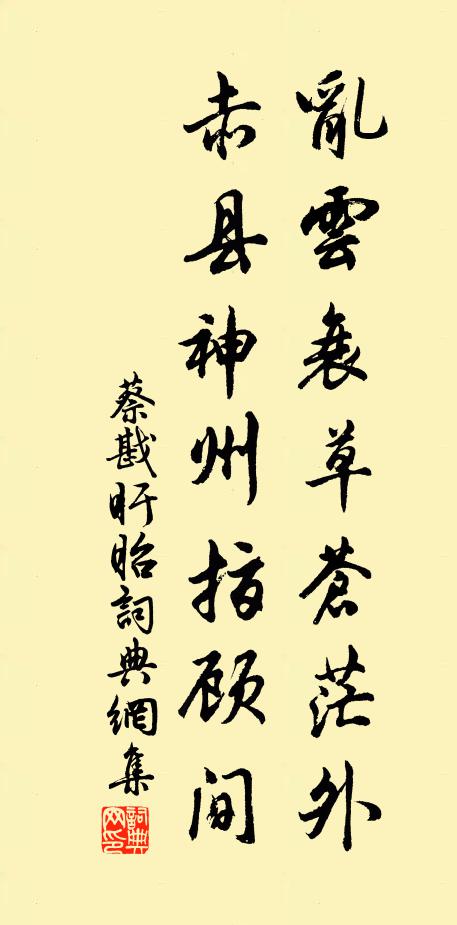 亂雲衰草蒼茫外
赤县神州指顾間
蔡戡盱眙詞典網集
詞典網印